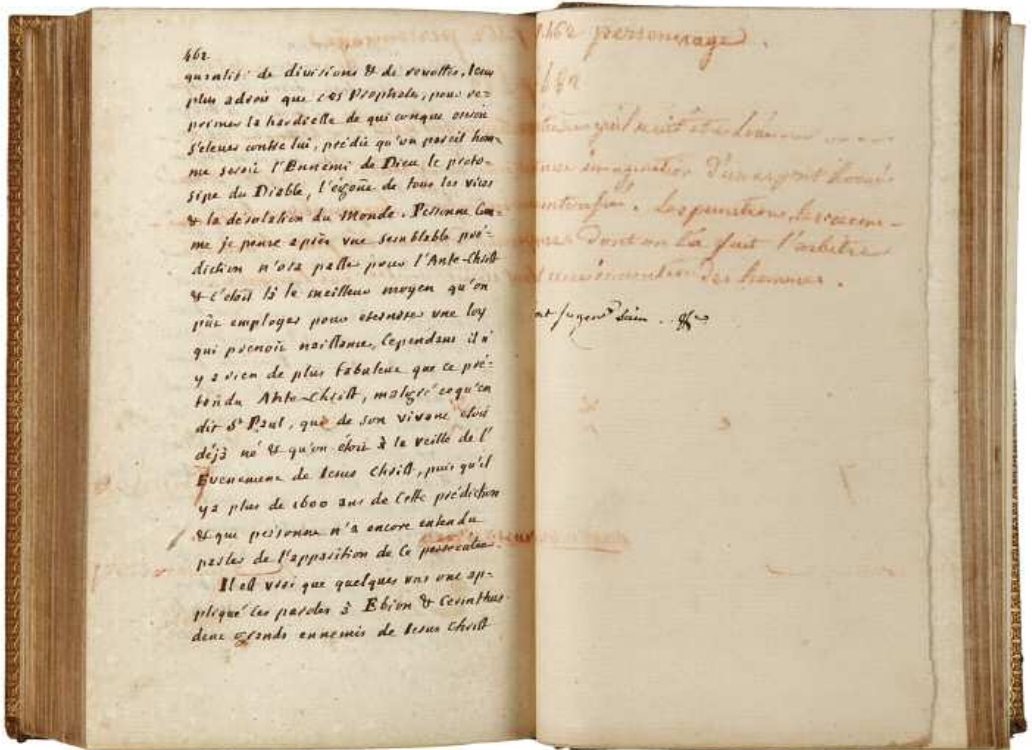 462
quantité de divisions & de revoltes, Iesus
plus adroit que ces Prophetes, pour re=
primer la hardiesse de qui conque oseroit
s'elever contre lui, prédit qu'un pareil hom=
me seroit l'Ennemi de Dieu, le proto=
tipe du Diable, l'égoût de tous les vices
& la désolation du Monde. Personne Com=
me je pense après une semblable pré=
diction n'osa passer pour l'Ante-Christ
& c'étoit là le meilleur moyen qu'on
pût employer pour eterniser une loy
qui prenoit naissance, Cependant il n'
y a rien de plus fabuleux que ce pré=
tendu Ante-Christ, malgré ce qu'en
dit St Paul, que de son vivant étoit
déjà né & qu'on étoit à la veille de l'
Evenement de Iesus Christ, puis qu'il
y a plus de 1600 ans de Cette prédiction
& que personne n'a encore entendu
parler de l'apparition de Ce
Il est vrai que quelques uns ont ap=
pliqué Ces paroles à Ebion & Cerinthus
deux grands ennemis de Iesus Christ
1.462 personnage.
imagination d'un esprit
. Les punitions,
dont on l'a fait l'arbitre
des hommes.